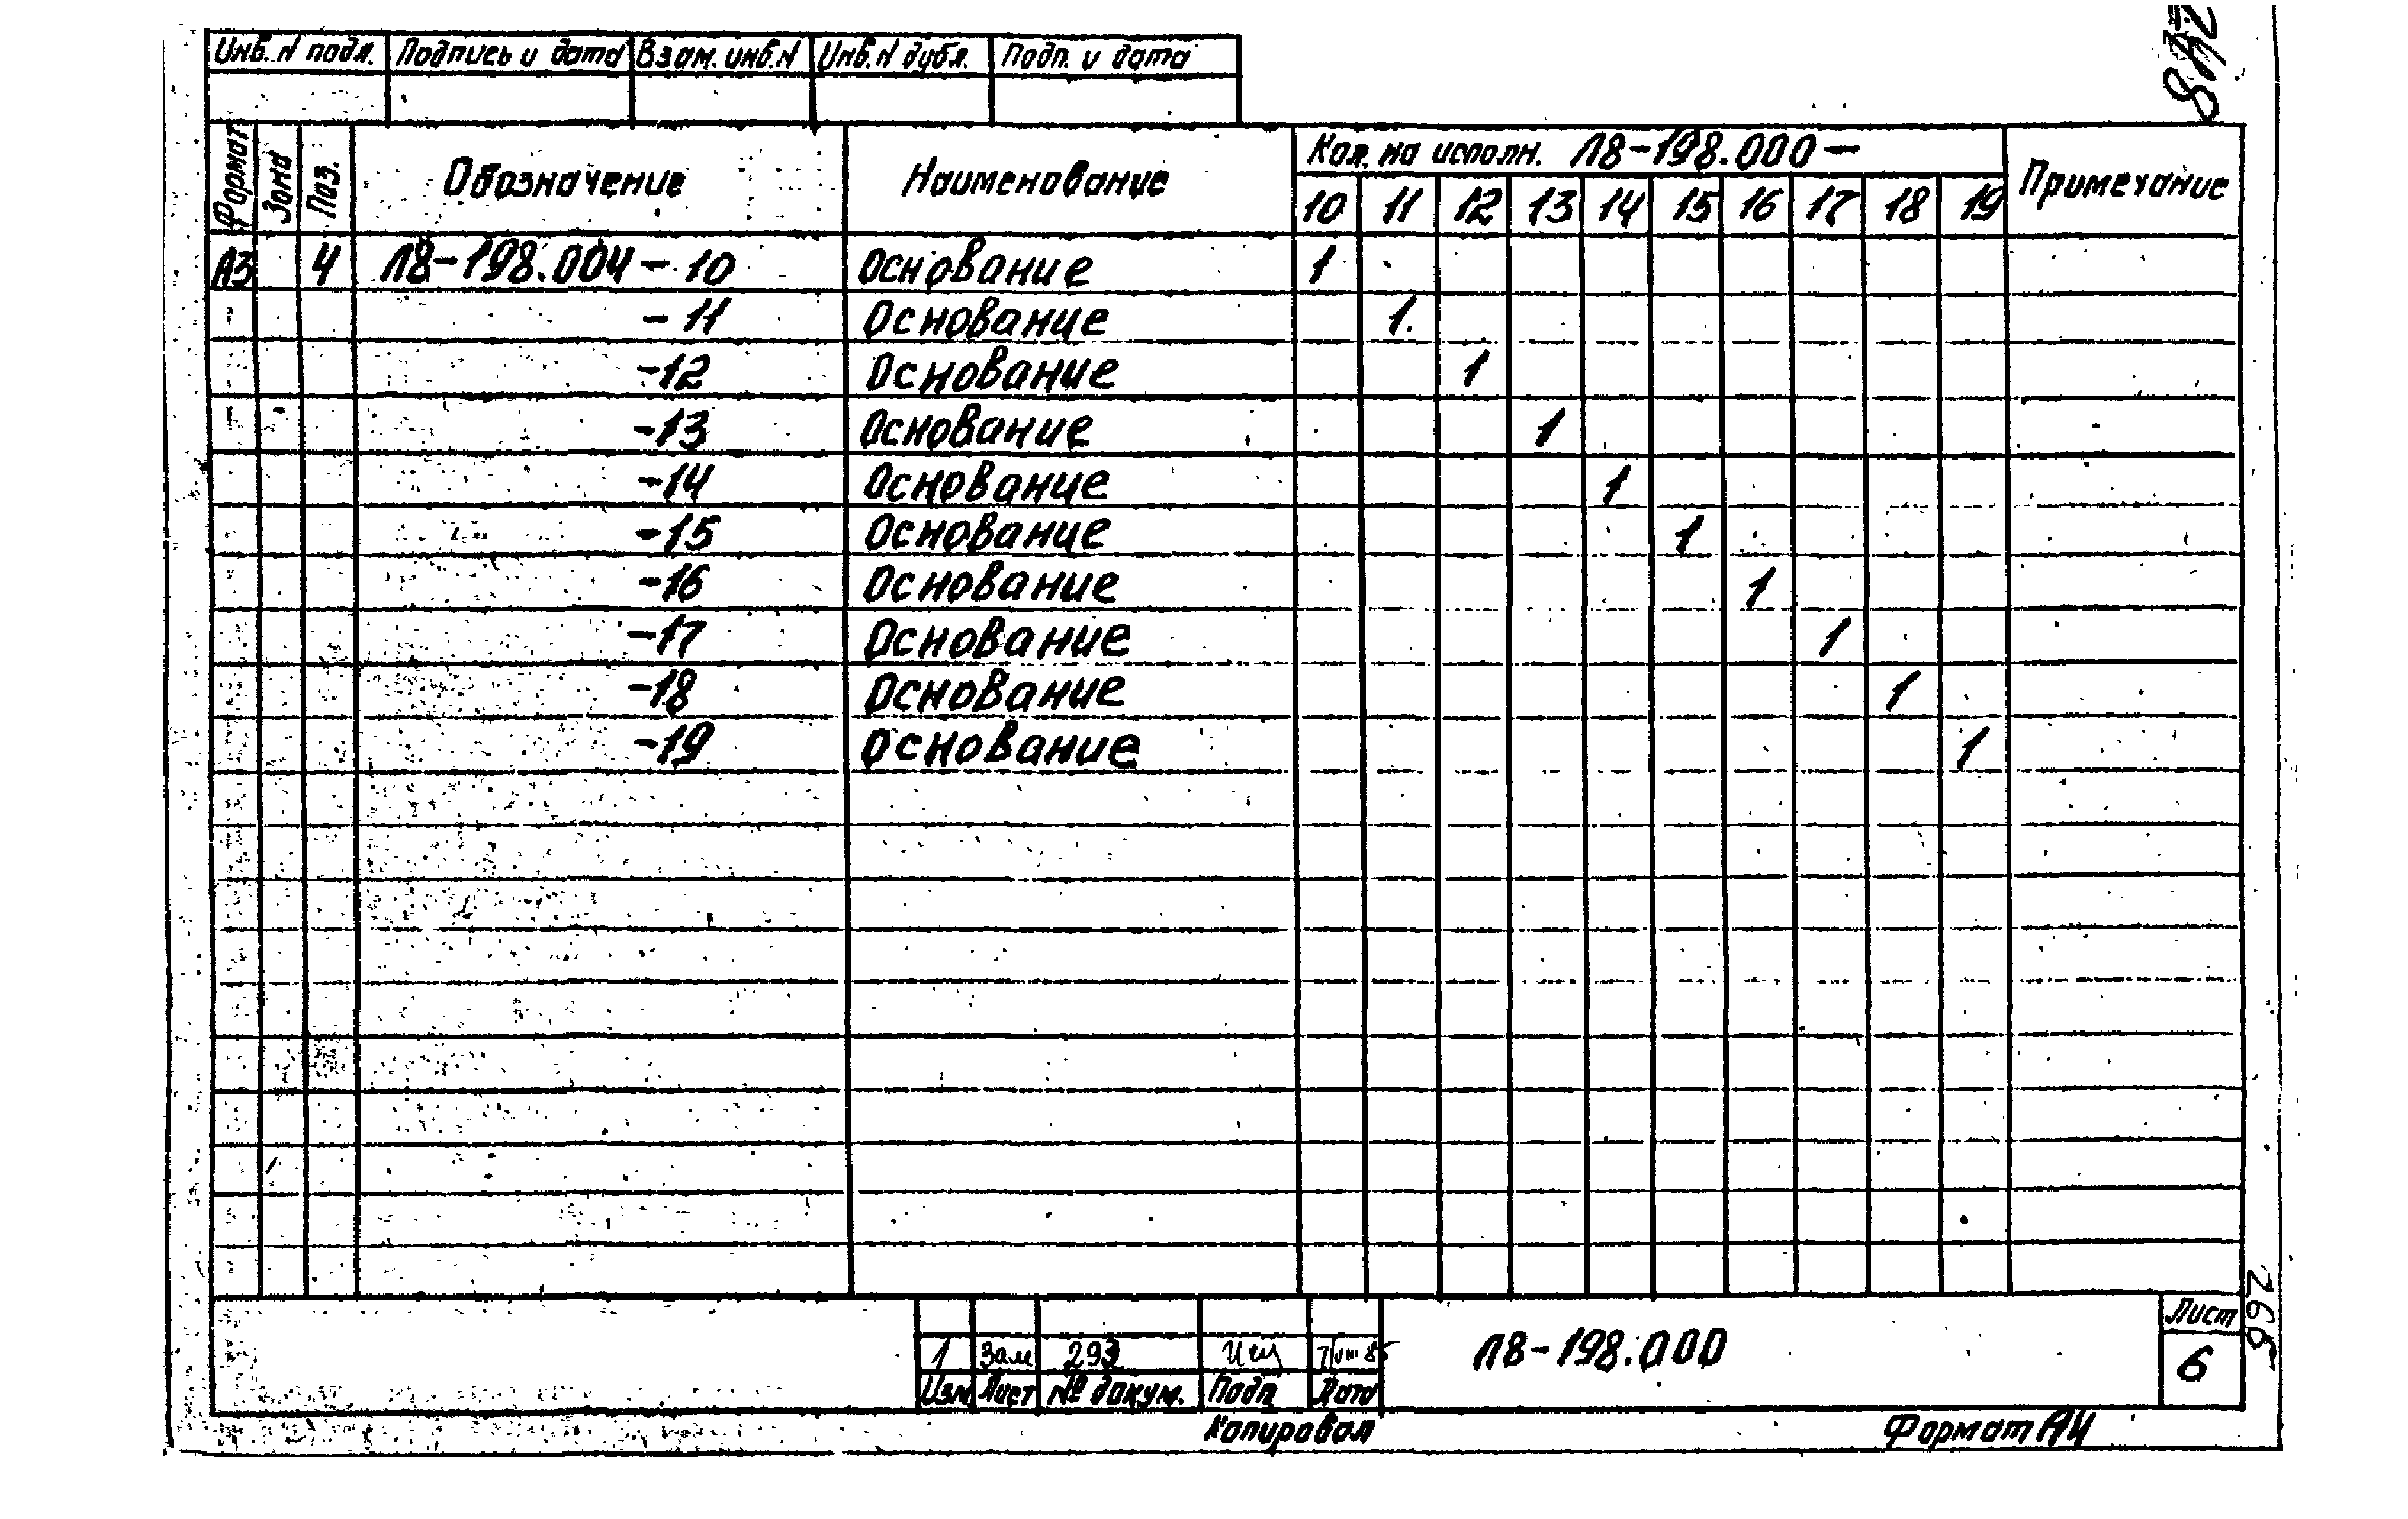 Инв. N подл. Подпись и дата Взам. инв. N Инв. N дубл. Подп. и дата
Формат Зона Поз. Обозначение Наименование Кол. на исполн. Л8-198.000- Примечание
10 11 12 13 14 15 16 17 18 19
А3 4 Л8-198.004-10 Основание 1
-11 Основание 1
-12 Основание 1
-13 Основание 1
-14 Основание 1
-15 Основание 1
-16 Основание 1
-17 Основание 1
-18 Основание 1
-19 Основание 1
Лист
1 Зам 293 Л8-198.000 6
Изм Лист № докум. Подп Дата
Копировал Формат А4
266